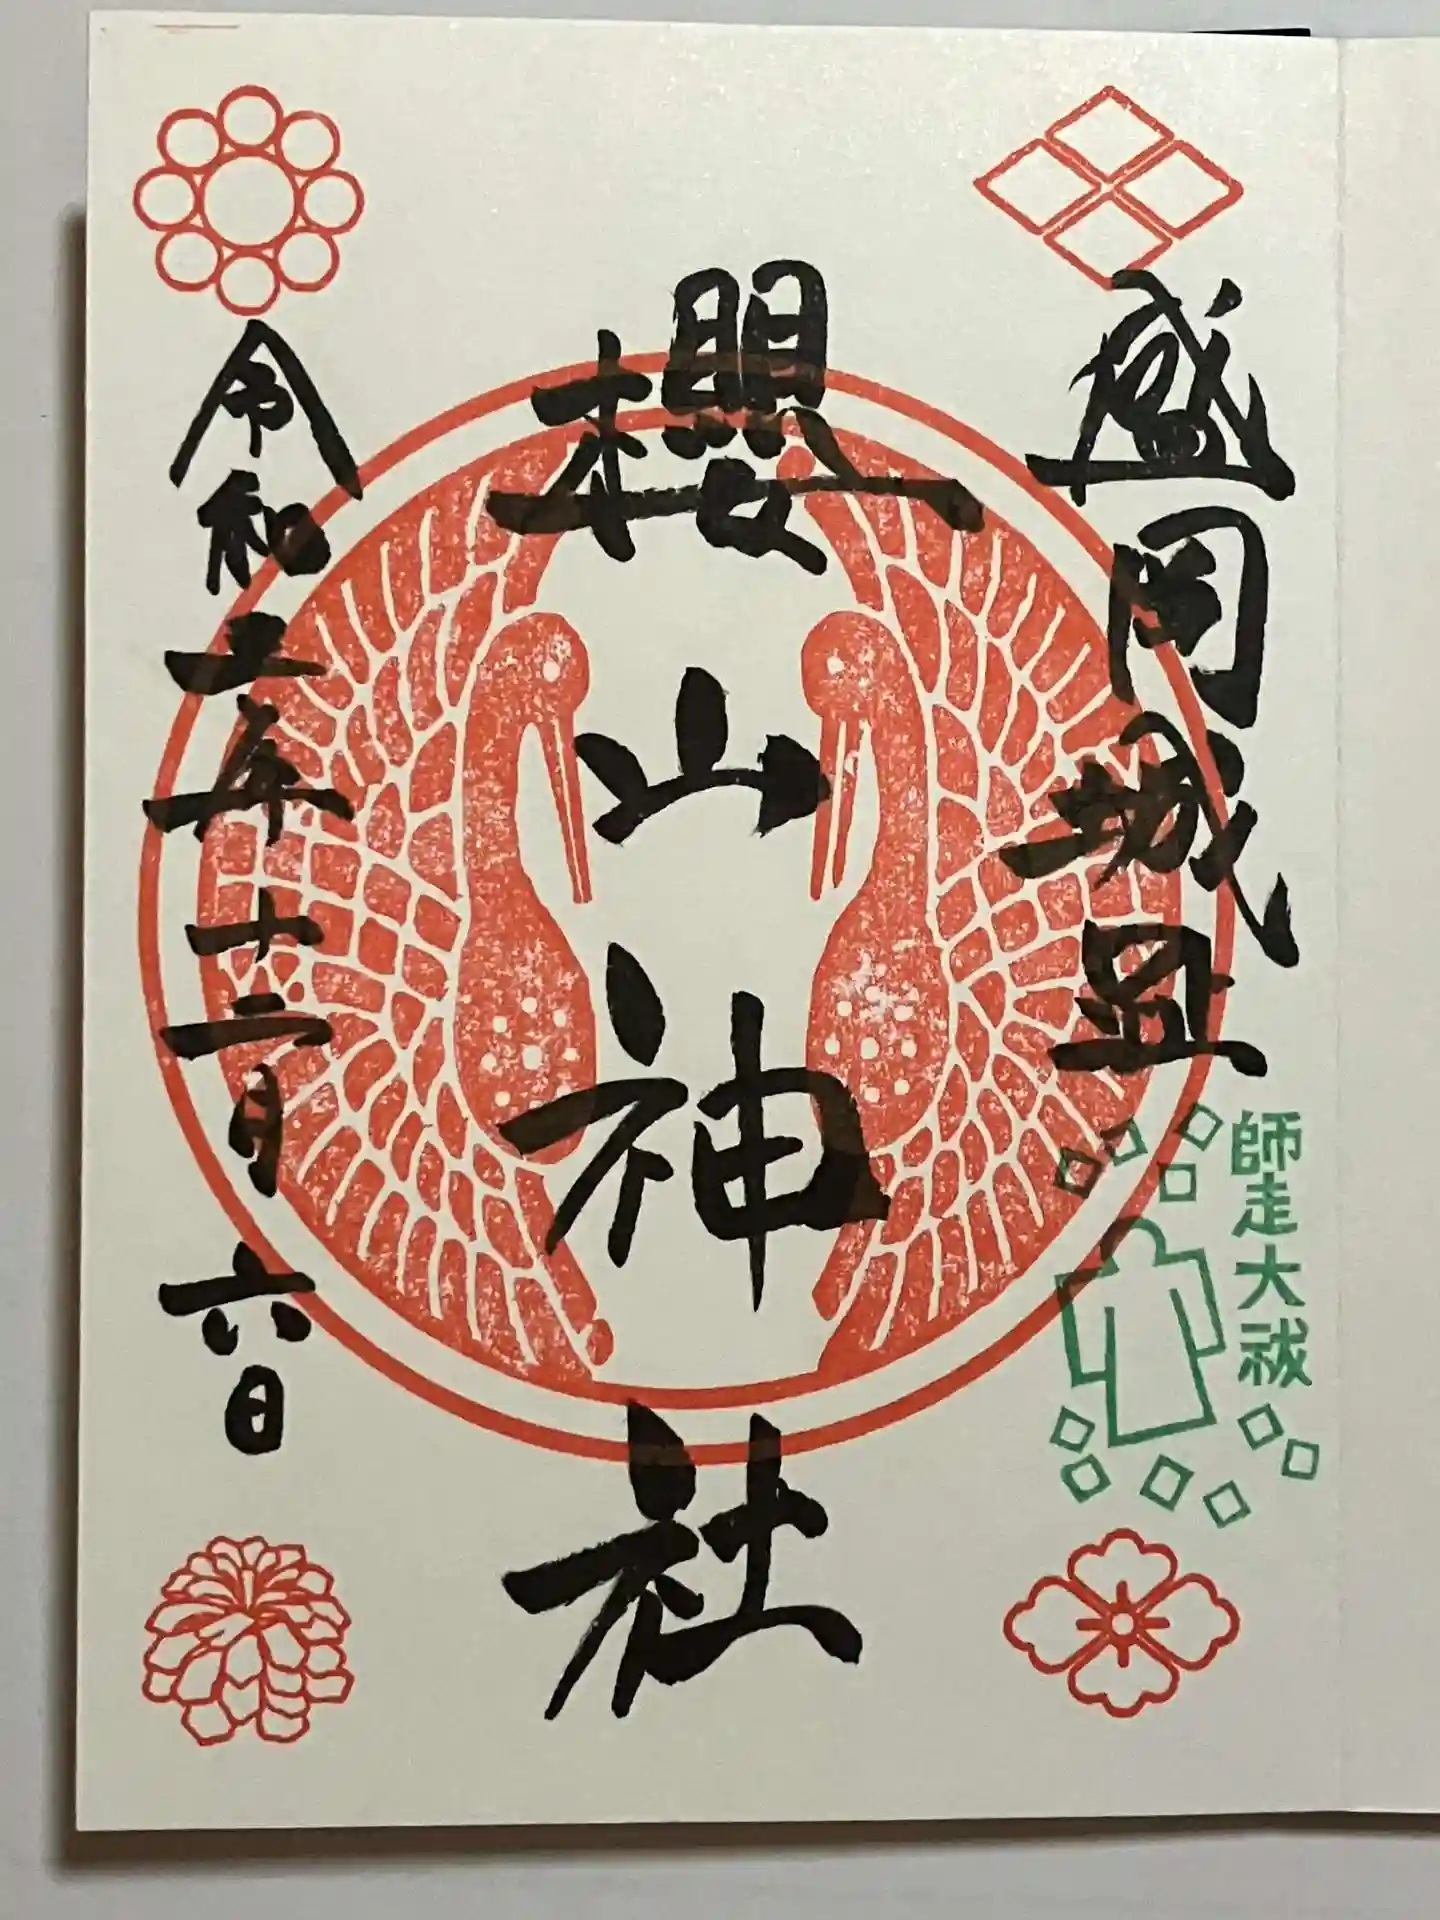 盛岡城
師走大祓
櫻山神社
令和五年十二月六日